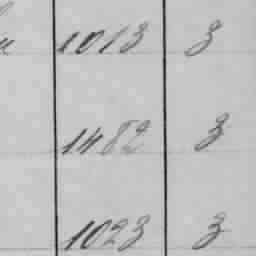 1013 3
1482 3
1023 3